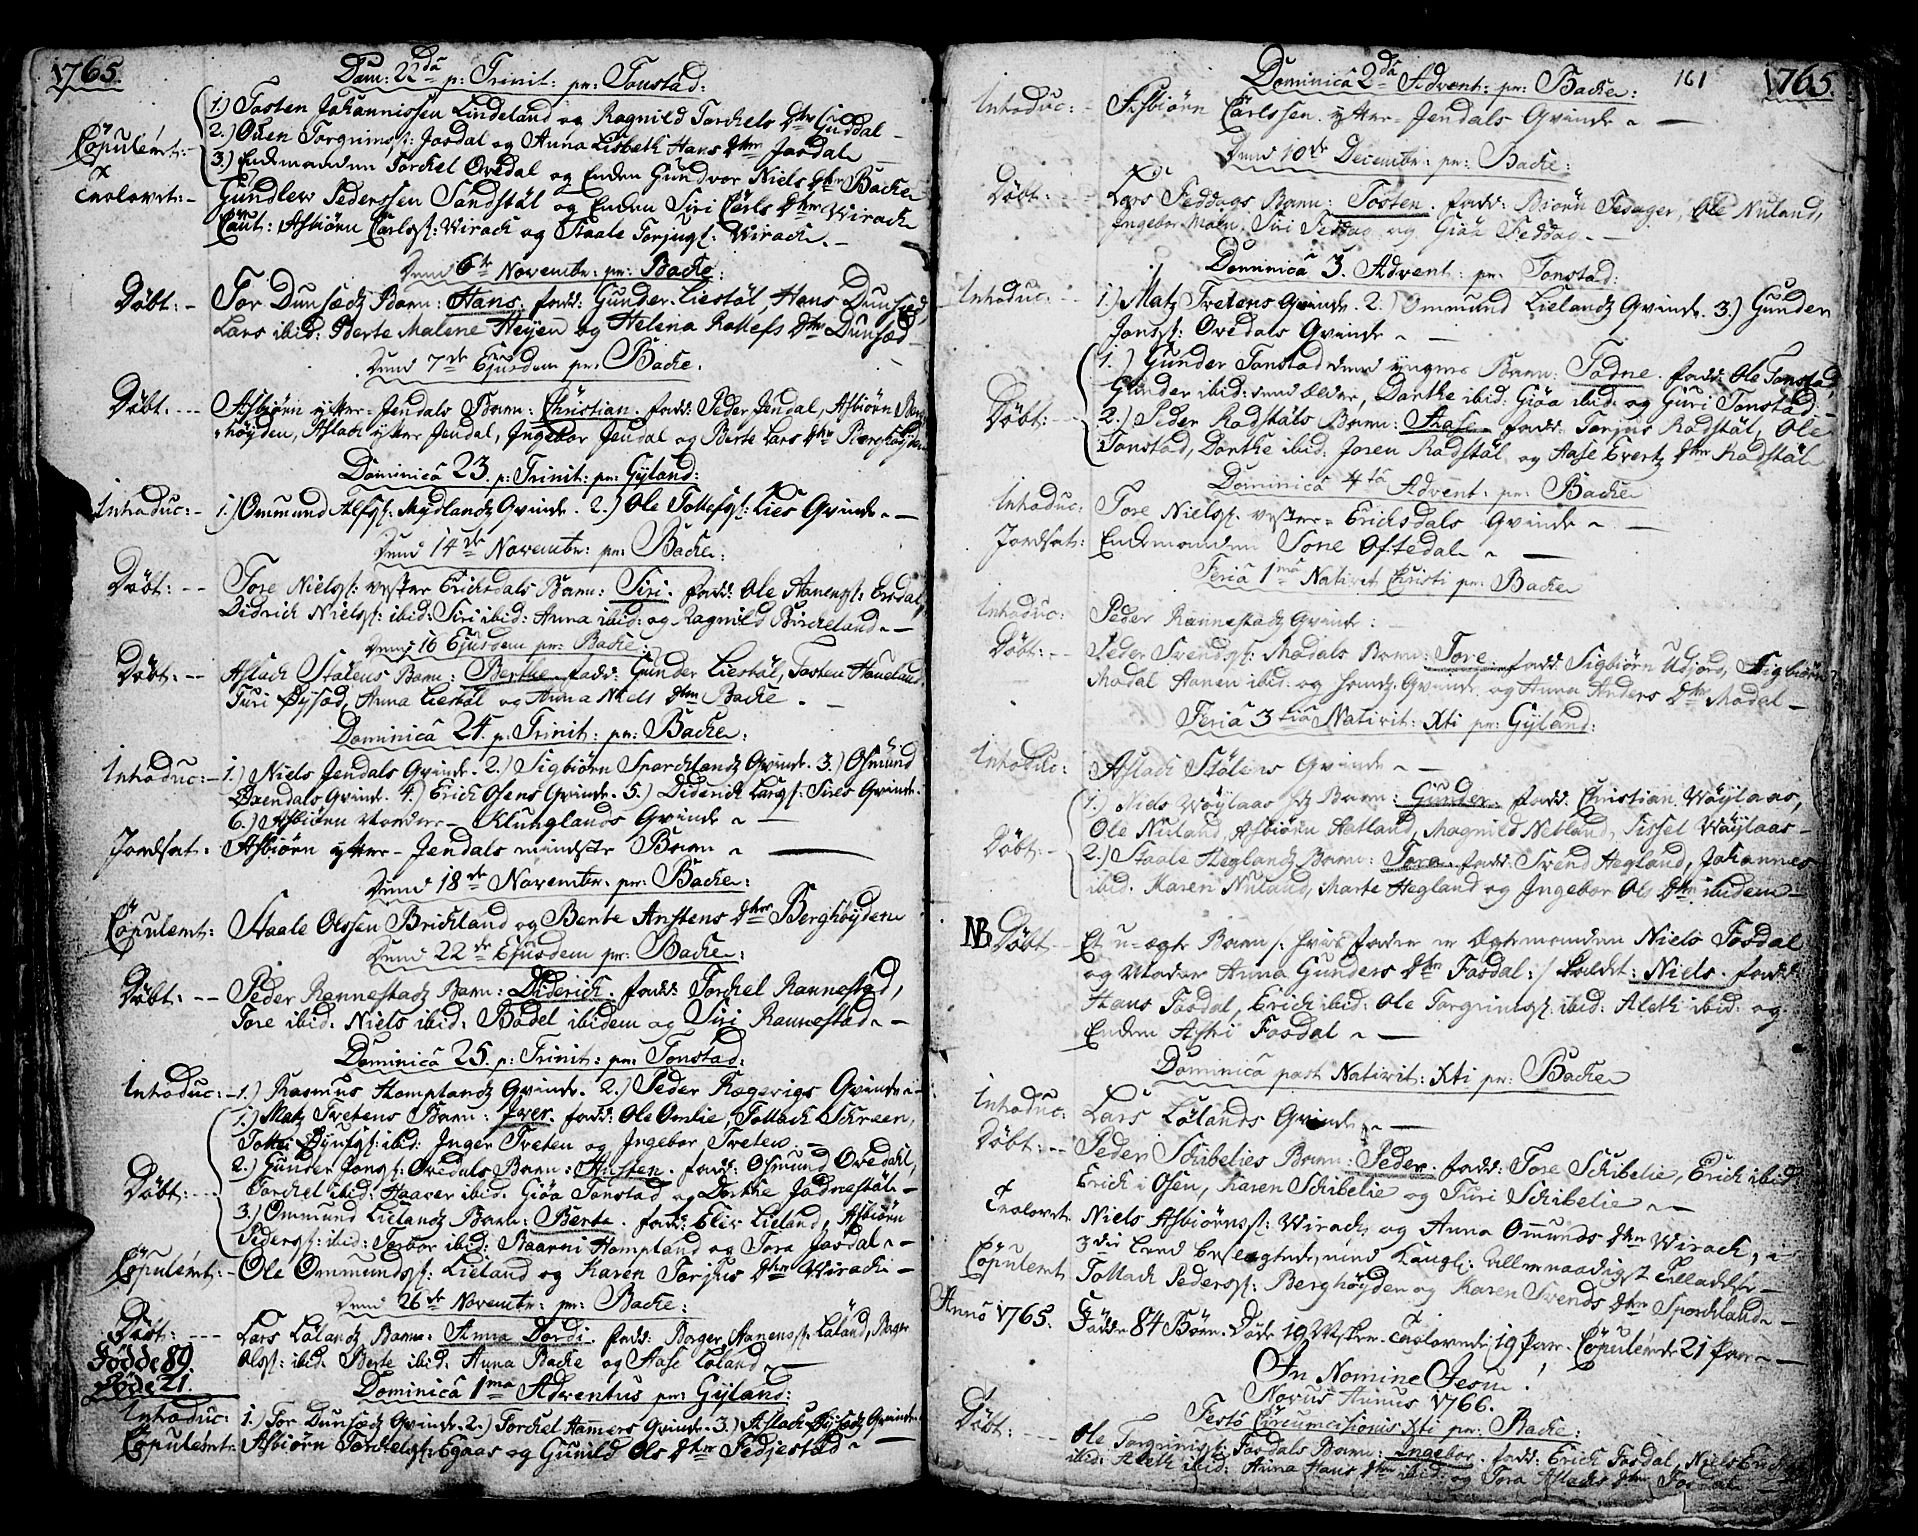 1765.
Dom: 22da p: Trinit: pr: Tonstad:
1.) Tosten Johannissen Lindeland og Ragnild Torchels Dtr Guddal
Copulerit: 2.) Ouen Torgrims: Josdal og Anna Lisbeth Hans Dtr Josdal
3.) Enckemanden Torchel Ovedal og Encken Gundvor Niels Dtr Backe
Trolovet: Gundlew Pederssen Sandstøl og Encken Siri Carls Dtr Wirach
Caut: Asbiørn Carls: Wirach og Staale Torjus: Wirach.
Dend 6te Novembr: pr: Backe:
Døbt: Tor Dunsædz Barn: Hans. fadd: Gunder Liestøl, Hans Dunsæd,
Lars ibid: Berte Malene Heyen og Helena Dtr Dunsæd
Dend 7de Ejusdem pr: Backe.
Døbt: Asbiørn ytter-Jendals Barn: Christian. fadd: Peder Jendal, Asbiørn
høyden, Aslach ytter Jendal, Ingebor Jendal og Berte Lars Dtr
Dominica 23. p: Trinit: pr: Gyland:
Introduc: 1.) Ommund Mydlandz Qvinde. 2.) Ole Lies Qvinde.
Dend 14de Novembr: pr: Backe:
Døbt: Tore Niels: vester Erichsdals Barn: Siri. fadd: Ole Ersdal
Didrich Niels: ibid: Siri ibid: Anna ibid: og Ragnild Bircheland.
Dend 16 Ejusdem pr: Backe:
Døbt: Aslach Stølens Barn: Berthe. fadd: Gunder Liestøl, Tosten Haueland
Turi Anna Liestøl og Anna Niels Dtr Backe.
Dominica 24. p: Trinit: pr: Backe:
Introduc: 1.) Niels Jendals Qvinde. 2.) Sigbiørn Sporchlandz Qvinde. 3.) Osmund
Qvinde. 4.) Erich Osens Qvinde. 5.) Diderich Lars: Sires Qvinde.
6.) Asbiøen Klunglands Qvinde
Jordsat: Asbiørn ytter-Jendals mindste Barn
Dend 18de Novembr: pr: Backe:
Copulerit: Staale Olssen Brichland og Berte Anstens Dtr Berghøyden
Dend 22de Ejusdem pr: Backe:
Døbt: Peder Rannestadz Barn: Diderich. fadd: Torchel Rannestad,
Tore ibid: Niels ibid: Bodel ibidem og Siri Rannestad.
Dominica 25. p: Trinit: pr: Tonstad:
Introduc: 1.) Rasmus Homplandz Qvinde. 2.) Peder Kægevigs Qvinde
1.) Matz Tvetens Barn: Iver. fadd: Ole Omlie, Tollach Schreen,
ibid: Inger Tveten og Ingebor Tveten.
2.) Gunder Jons: Ovedals Barn: Austen. fadd: Osmund Ovedahl,
Døbt: Torchel ibid: Haaver ibid. Giøa Tonstad og Dorthe Josdal
3.) Ommund Lielandz Barn: Berte. fadd: Elev Lieland, Asbiørn
Peders: ibid: ibid: Hompland og Tora Josdal
Copulerit: Ole Ommunds: Lieland og Karen Torjus Dtr Wirach
Dend 26de Novembr: pr: Backe:
Døbt: Lars Lølandz Barn: Anna Dordi. fadd: Borger Løland, Borger
Fødde 89. Ols: ibid. Berte ibid: Anna Backe og Aase Løland
Døde 21. Dominica 1ma Adventus pr: Gyland:
Introduc: 1.) Tor Dunsædz Qvinde. 2.) Torchel Qvinde. 3.) Aslach Qvinde
Copulerit: Asbiørn Torchels: Egaas og Gunild Ols Dtr Fedjestad
161 1765.
Dominica 2da Advent: pr: Backe:
Introduc: Asbiørn Carlssen ytter-Jendals Qvinde
Dend 10de Decembr: pr: Backe:
Døbt: Lars Feddogs Barn: Tosten. fadd: Biørn Ole Nuland,
Ingebor Siri Feddog og Giøa Feddog.
Dominica 3. Advent: pr: Tonstad:
Introduc: 1.) Matz Tvetens Qvinde. 2.) Ommund Lielandz Qvinde. 3.) Gunder
Jons: Ovedals Qvinde
1.) Gunder Tonstad dend yngres Barn: Todne. fadd: Ole Tonstad
Gunder ibid: dend ældre, Dorthe ibid: Giøa ibid: og Guri Tonstad:
Døbt: 2.) Peder Rodstøls Barn: Aase. fadd: Torjus Rodstøl, Ole
Tonstad, Dorthe ibid: Joren Rodstøl og Aase Evertz Dtr Rodstøl
Dominica 4ta Advent: pr: Backe
Introduc: Tore Niels: vester-Erichsdals Qvinde
Jordsat: Enckemanden Tore Oftedal
Feria 1ma Nativit Christi pr: Backe
Introduc: Peder Rannestadz Qvinde:
Døbt: Peder Svends: Modals Barn: Tore. fadd: Sigbiørn Udjord, Sigbiørn
Modal Hanen ibid: og hands Qvinde og Anna Anders Dtr Modal
Feria 3tia Nativit: Xti pr: Gyland:
Introduc: Aslach Stølens Qvinde
1.) Niels Wøylaas Barn: Gunder. fadd: Christian Wøylaas,
Ole Nuland, Asbiørn Hatland, Magnild Netland, Sissel Wøylaas
Døbt: 2.) Staale Heglandz Barn: Tore. fadd: Svend Hegland, Johannes
ibid. Karen Nuland, Marte Hegland og Ingebor Ols Dtr ibidem
NB Døbt Et u-ægte Barn /: hvis fader er Ægtemanden Niels Josdal
og Moder Anna Gunders Dtr Josdal :/ kaldet: Niels. fadd:
Hans Josdal, Erich ibid: Ole Torgrims: ibid: Aleth ibid: og
Encken Astri Josdal
Dominica post Nativit: Xti pr: Backe
Introduc: Lars Lølands Qvinde
Døbt: Peder Schibelies Barn: Peder. fadd: Tore Schibelie, Erich ibid
Erich i Osen, Karen Schibelie og Turi Schibelie
Trolovet Niels Asbiørns: Wirach og Anna Omunds Dtr Wirach, i
3die Leed beslegtede, med Kongl: allernaadigst Tilladelse
Copulerit Tollach Peders: Berghøyden og Karen Svends Dtr Sporchland
Anno 1765. Fødde 84 Børn. Døde 19 Trolovede 19 Par. Copulerede 21 Par
In Nomine Jesu!
Novus Annus 1766.
Festo Circumcisionis Xti pr: Backe:
Døbt: Ole Torgrims: Josdals Barn: Ingebor. fadd: Erich Josdal, Niels Erich
ibid: Aleth ibid: Anna Hans Dtr ibid: og Tora Aslachs Dtr Josdal